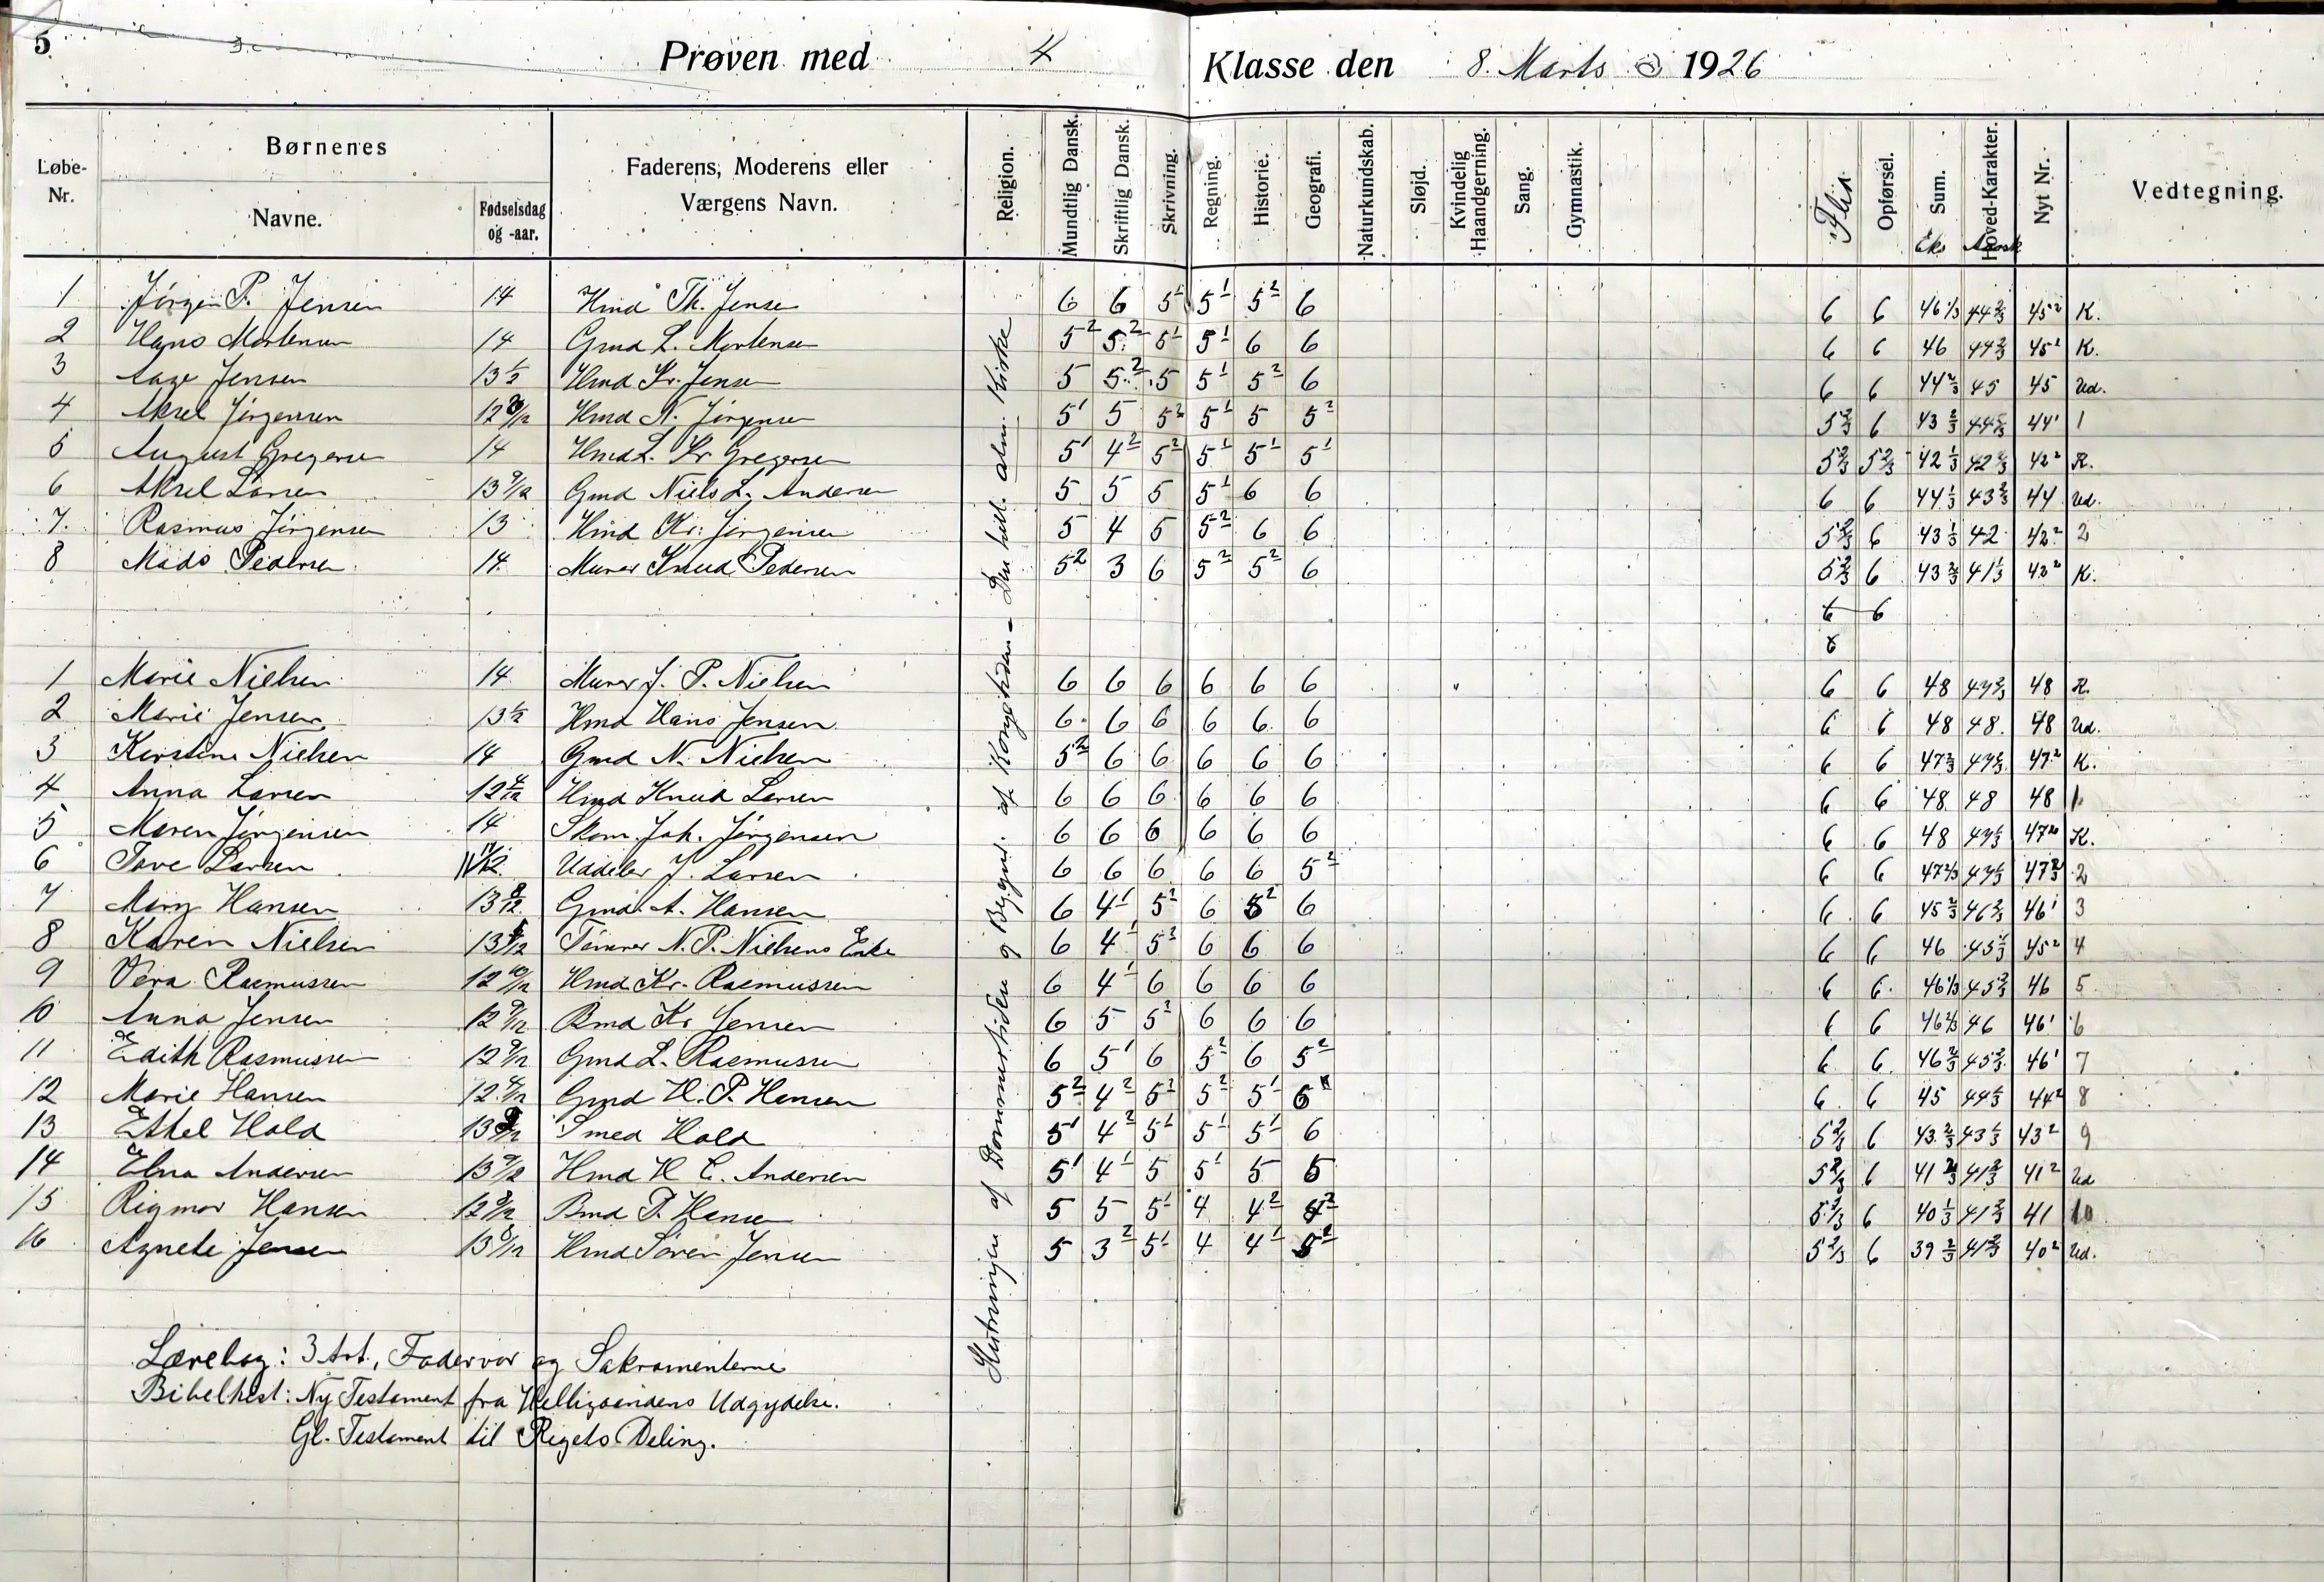 5
Prøven med 4 Klasse den 8. Marts 1926
Løbe-Nr. Børnenes Navne. Fødselsdag og -aar. Faderens, Moderens eller Værgens Navn. Religion. Mundtlig Dansk. Skriftlig Dansk. Skrivning. Regning. Historie. Geografi. Naturkundskab. Sløjd. Kvindelig Haandgerning. Sang. Gymnastik. Flid Opførsel. Sum. Eks Hoved-Karakter. Aarsk Nyt Nr. Vedtegning.
1 Jørgen P. Jensen 14 Hmd Th. Jensen 6 6 5¹ 5¹ 5² 6 6 6 46 1/3 44 2/3 45² K.
2 Hans Mortensen 14 Gmd L. Mortensen 5² 5² 5¹ 5¹ 6 6 6 6 46 44 2/3 45¹ K.
3 Aage Jensen 13 1/2 Hmd Kr. Jensen 5 5² 5 5¹ 5² 6 6 6 44 2/3 45 45 Ud.
4 Aksel Jørgensen Hmd N. Jørgensen 5¹ 5 5² 5¹ 5 5² 5 2/3 6 43 2/3 44¹ 1
5 August Gregersen 14 Hmd L. Kr Gregersen 5¹ 4² 5² 5¹ 5¹ 5¹ 5 2/3 5 2/3 42 1/3 42 2/3 42² K.
6 Aksel Larsen 13 9/12 Gmd Niels L. Andersen 5 5 5 5¹ 6 6 6 6 44 1/3 43 2/3 44 Ud.
7. Rasmus Jørgensen 13 Hmd Kr. Jørgensen 5 4 5 5² 6 6 5 2/3 6 43 1/3 42 42² 2
8 Mads Pedersen 14 Murer Knud Pedersen 5² 3 6 5² 5² 6 5 2/3 6 43 2/3 41 1/3 42² K.
6 6
6
1 Marie Nielsen 14 Murer J. P. Nielsen 6 6 6 6 6 6 6 6 48 47 2/3 48 K.
2 Marie Jensen 13 1/2 Hmd Hans Jensen 6 6 6 6 6 6 6 6 48 48 48 Ud.
3 Kirstine Nielsen 14 Gmd N. Nielsen 5² 6 6 6 6 6 6 6 47 2/3 47 2/3 47² K.
4 Anna Larsen 12 4/12 Hmd Knud Larsen 6 6 6 6 6 6 6 6 48 48 48 1
5 Maren Jørgensen 14 Skom. Joh. Jørgensen 6 6 6 6 6 6 6 6 48 47 1/3 47² K.
6 Tove Larsen Uddeler J. Larsen 6 6 6 6 6 5² 6 6 47 2/3 47 1/3 47 2/3 2
7 Mary Hansen 13 Gmd. A. Hansen 6 4¹ 5² 6 5² 6 6 6 45 2/3 46 2/3 46¹ 3
8 Karen Nielsen 13 Tømrer N. P. Nielsens Enke 6 4¹ 5² 6 6 6 6 6 46 45 1/3 45² 4
9 Vera Rasmussen 12 10/12 Hmd Kr. Rasmussen 6 4¹ 6 6 6 6 6 6 46 1/3 45 2/3 46 5
10 Anna Jensen 12 9/12 Bmd Kr Jensen 6 5 5² 6 6 6 6 6 46 2/3 46 46¹ 6
11 Edith Rasmussen 12 9/12 Gmd L. Rasmussen 6 5¹ 6 5² 6 5² 6 6 46 2/3 45 2/3 46¹ 7
12 Marie Hansen 12 4/12 Gmd H. P. Hansen 5² 4² 5² 5² 5¹ 6 6 6 45 44 1/3 44² 8
13 Ethel Hald 13 Smed Hald 5¹ 4² 5¹ 5¹ 5¹ 6 5 2/3 6 43 2/3 43 1/3 43² 9
14 Elna Andersen 13 9/12 Hmd H C. Andersen 5¹ 4¹ 5 5¹ 5 5 5 2/3 6 41 2/3 41 2/3 41² Ud
15 Rigmor Hansen 12 Bmd P. Hansen 5 5 5¹ 4 4² 4² 5 2/3 6 40 1/3 41 2/3 41 10
16 Agnete Jensen 13 Hmd Søren Jensen 5 3² 5¹ 4 4¹ 5² 5 2/3 6 39 2/3 41 2/3 40² Ud.
Slutningen af Dommertiden og Begynd. af Kongetiden – Den hell. alm. Kirke
Lærebog: 3 Art., Fadervor og Sakramenterne
Bibelhist: Ny Testament fra Helligaandens Udgydelse.
Gl. Testament til Rigets Deling.